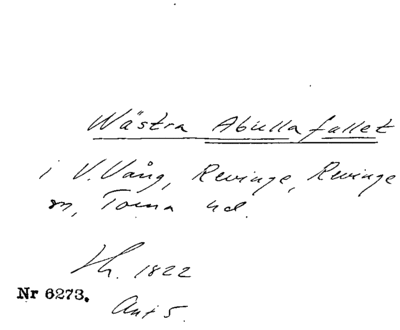 Wästra Abullafallet
i V. Vång, Revinge, Revinge
m, Torna hd.
Lh. 1822
Nr 6273.
Ant 5.